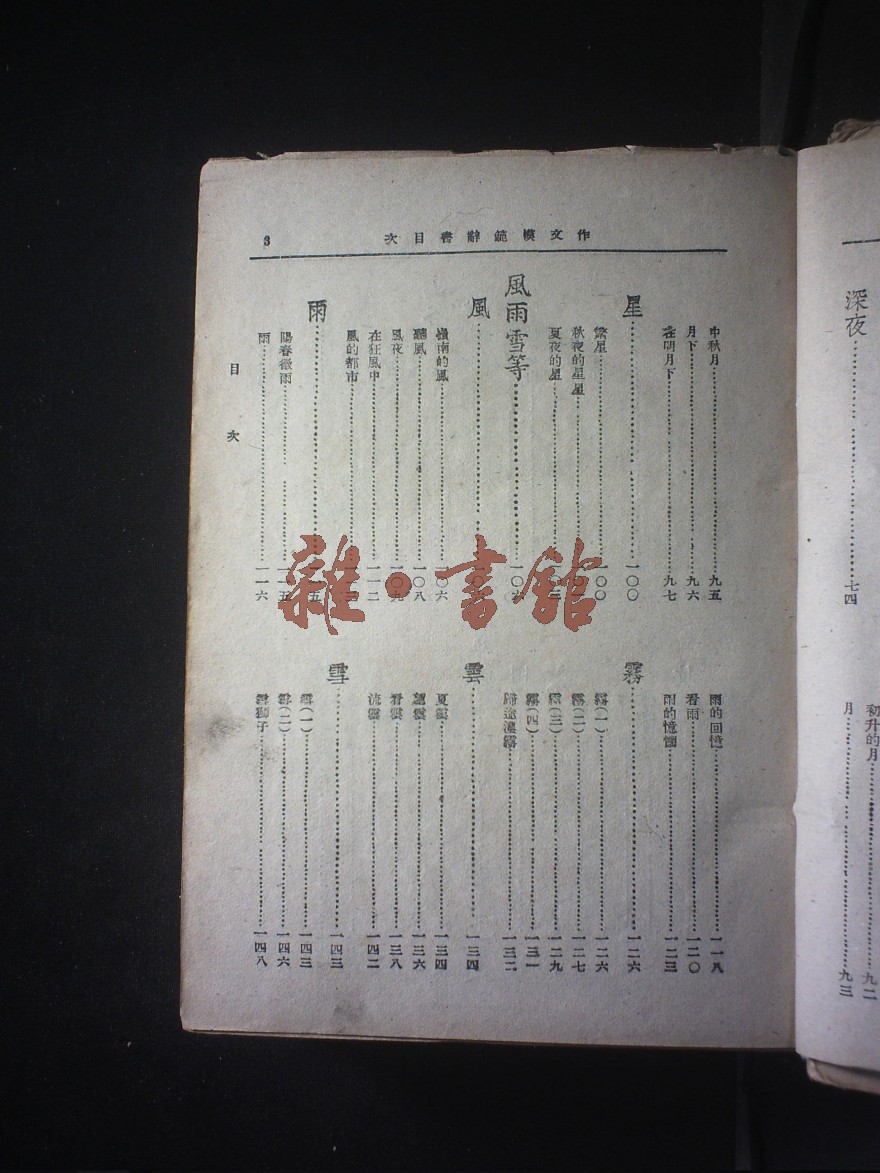 深夜……七四
初升的月……九二
月……九三
作文模範辭書目次
3
中秋月……九五
月下……九六
在明月下……九七
星……一〇〇
繁星……一〇〇
秋夜的星星……
夏夜的星……
風雨雪等……一〇六
風……
嶺南的風……一〇六
聽風……一〇八
風夜……一〇九
在狂風中……一一二
風的都市……
雨……一一五
陽春微雨……一一五
雨……一一六
雨的回憶……一一八
看雨……一二〇
雨的憶惘……一二三
霧……一二六
霧(一)……一二六
霧(二)……一二七
霧(三)……一二九
霧(四)……一三一
歸途遇霧……一三二
雲……一三四
夏雲……一三四
望雲……一三六
看雲……一三八
流雲……一四二
雪……一四三
雪(一)……一四三
雪(二)……一四六
雪獅子……一四八
目次
雜·書館